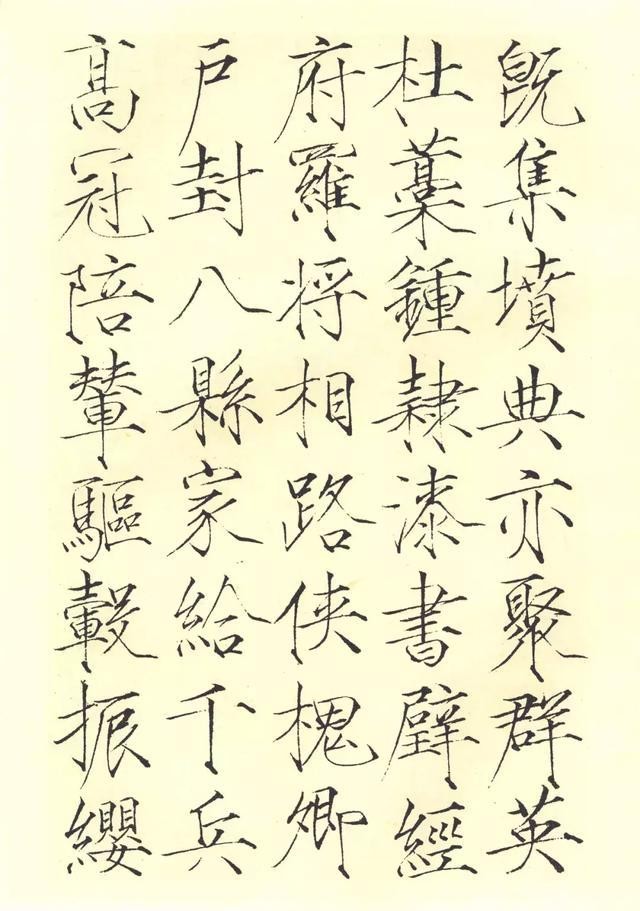 既集墳典亦聚群英
杜藁鍾隸漆書壁經
府羅將相路俠槐卿
戶封八縣家給千兵
高冠陪輦驅轂振纓